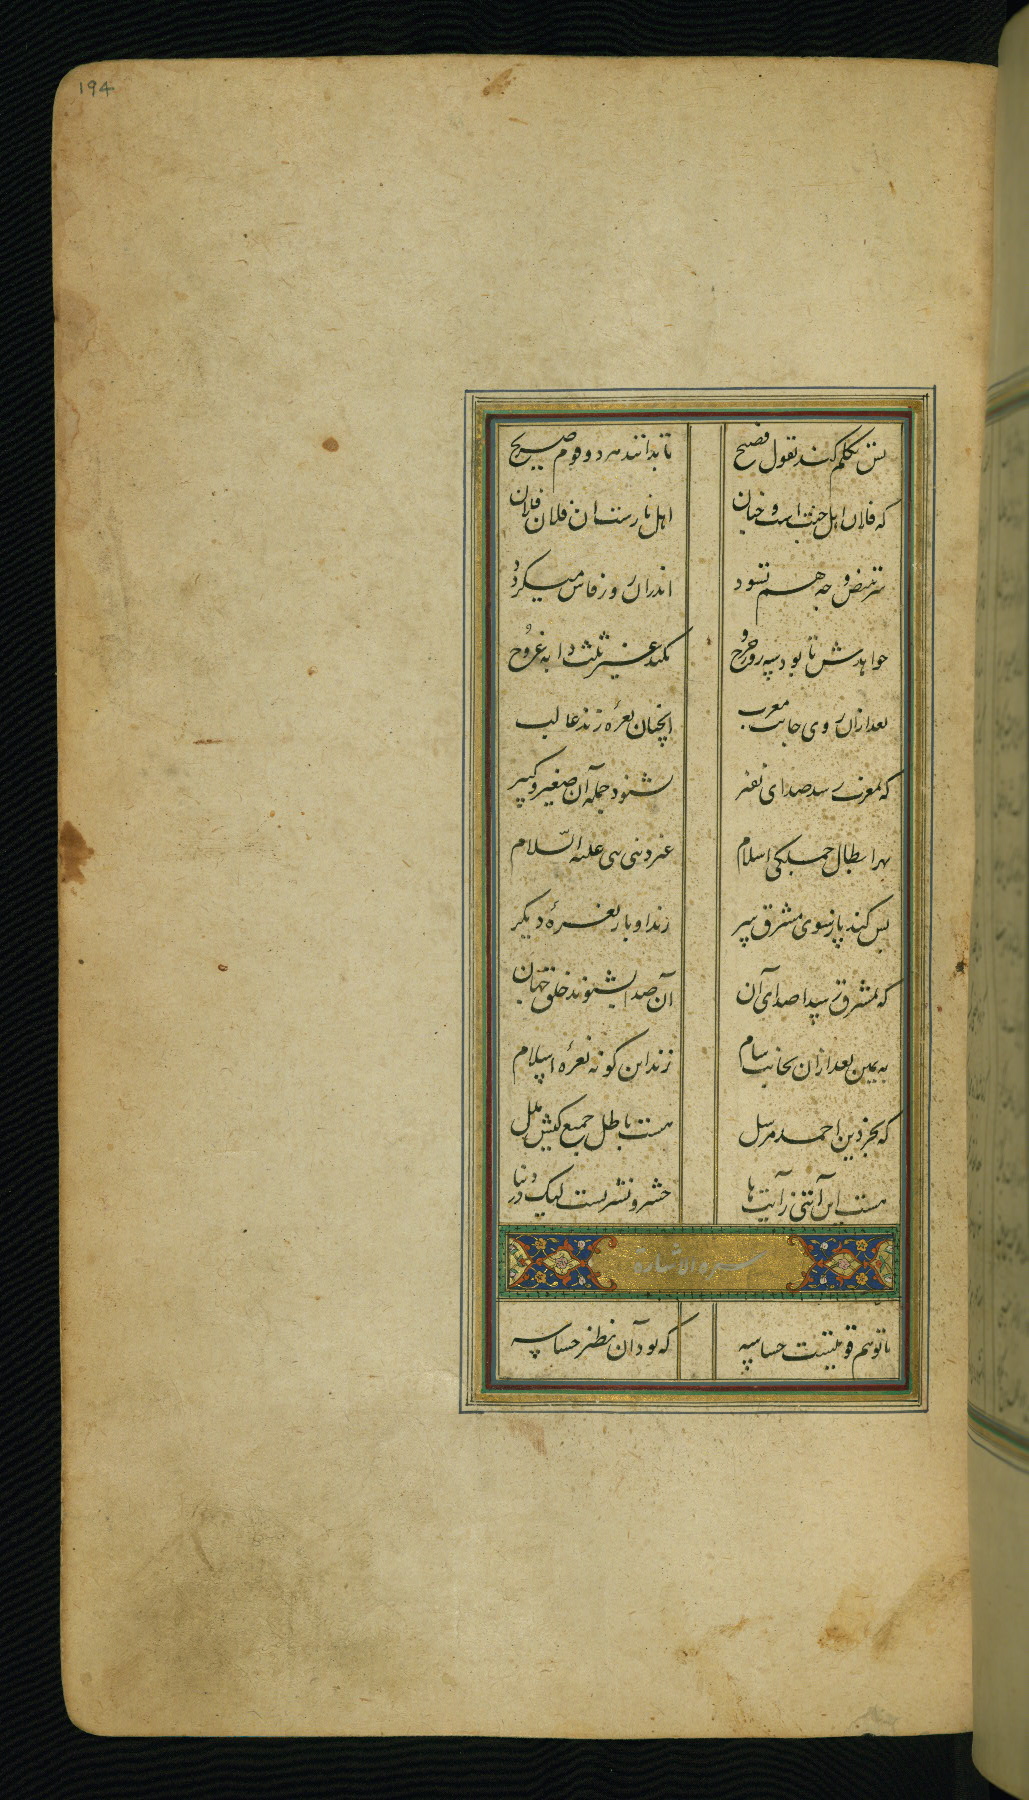 194
پس تکلم کند بقول فصیح تا بدانند هر دو قوم صریح
که فلان اهل جنت است و جنان اهل نارست ان فلان فلان
اندران روز فاش میکردد
خواهدش تا بود سه روز خروج نکند غیر ثلث دابه عروج
بعد ازان روی جانب مغرب انچنان نعرهٔ زند غالب
که بمغرب رسد صدای نفیر شنود جمله آن صغیر و کبیر
اسلام غیر دین نبی علیه السلام
پس کند باز سوی مشرق سیر زند او بار نعرهٔ دیکر
که بمشرق رسید صدای آن آن صدا بشنوند خلق جهان
به یمین بعد ازان بجانب شام زند این کونه نعرهٔ اسلام
که بجز دین احمد مرسل هست باطل جمیع کیش و ملل
هست این آیتی ز آیت ها حشر و نشرست لیک در دنیا
سره الاشارة
با تو هم قوتیست حساسه که بود آن نظیر جساسه